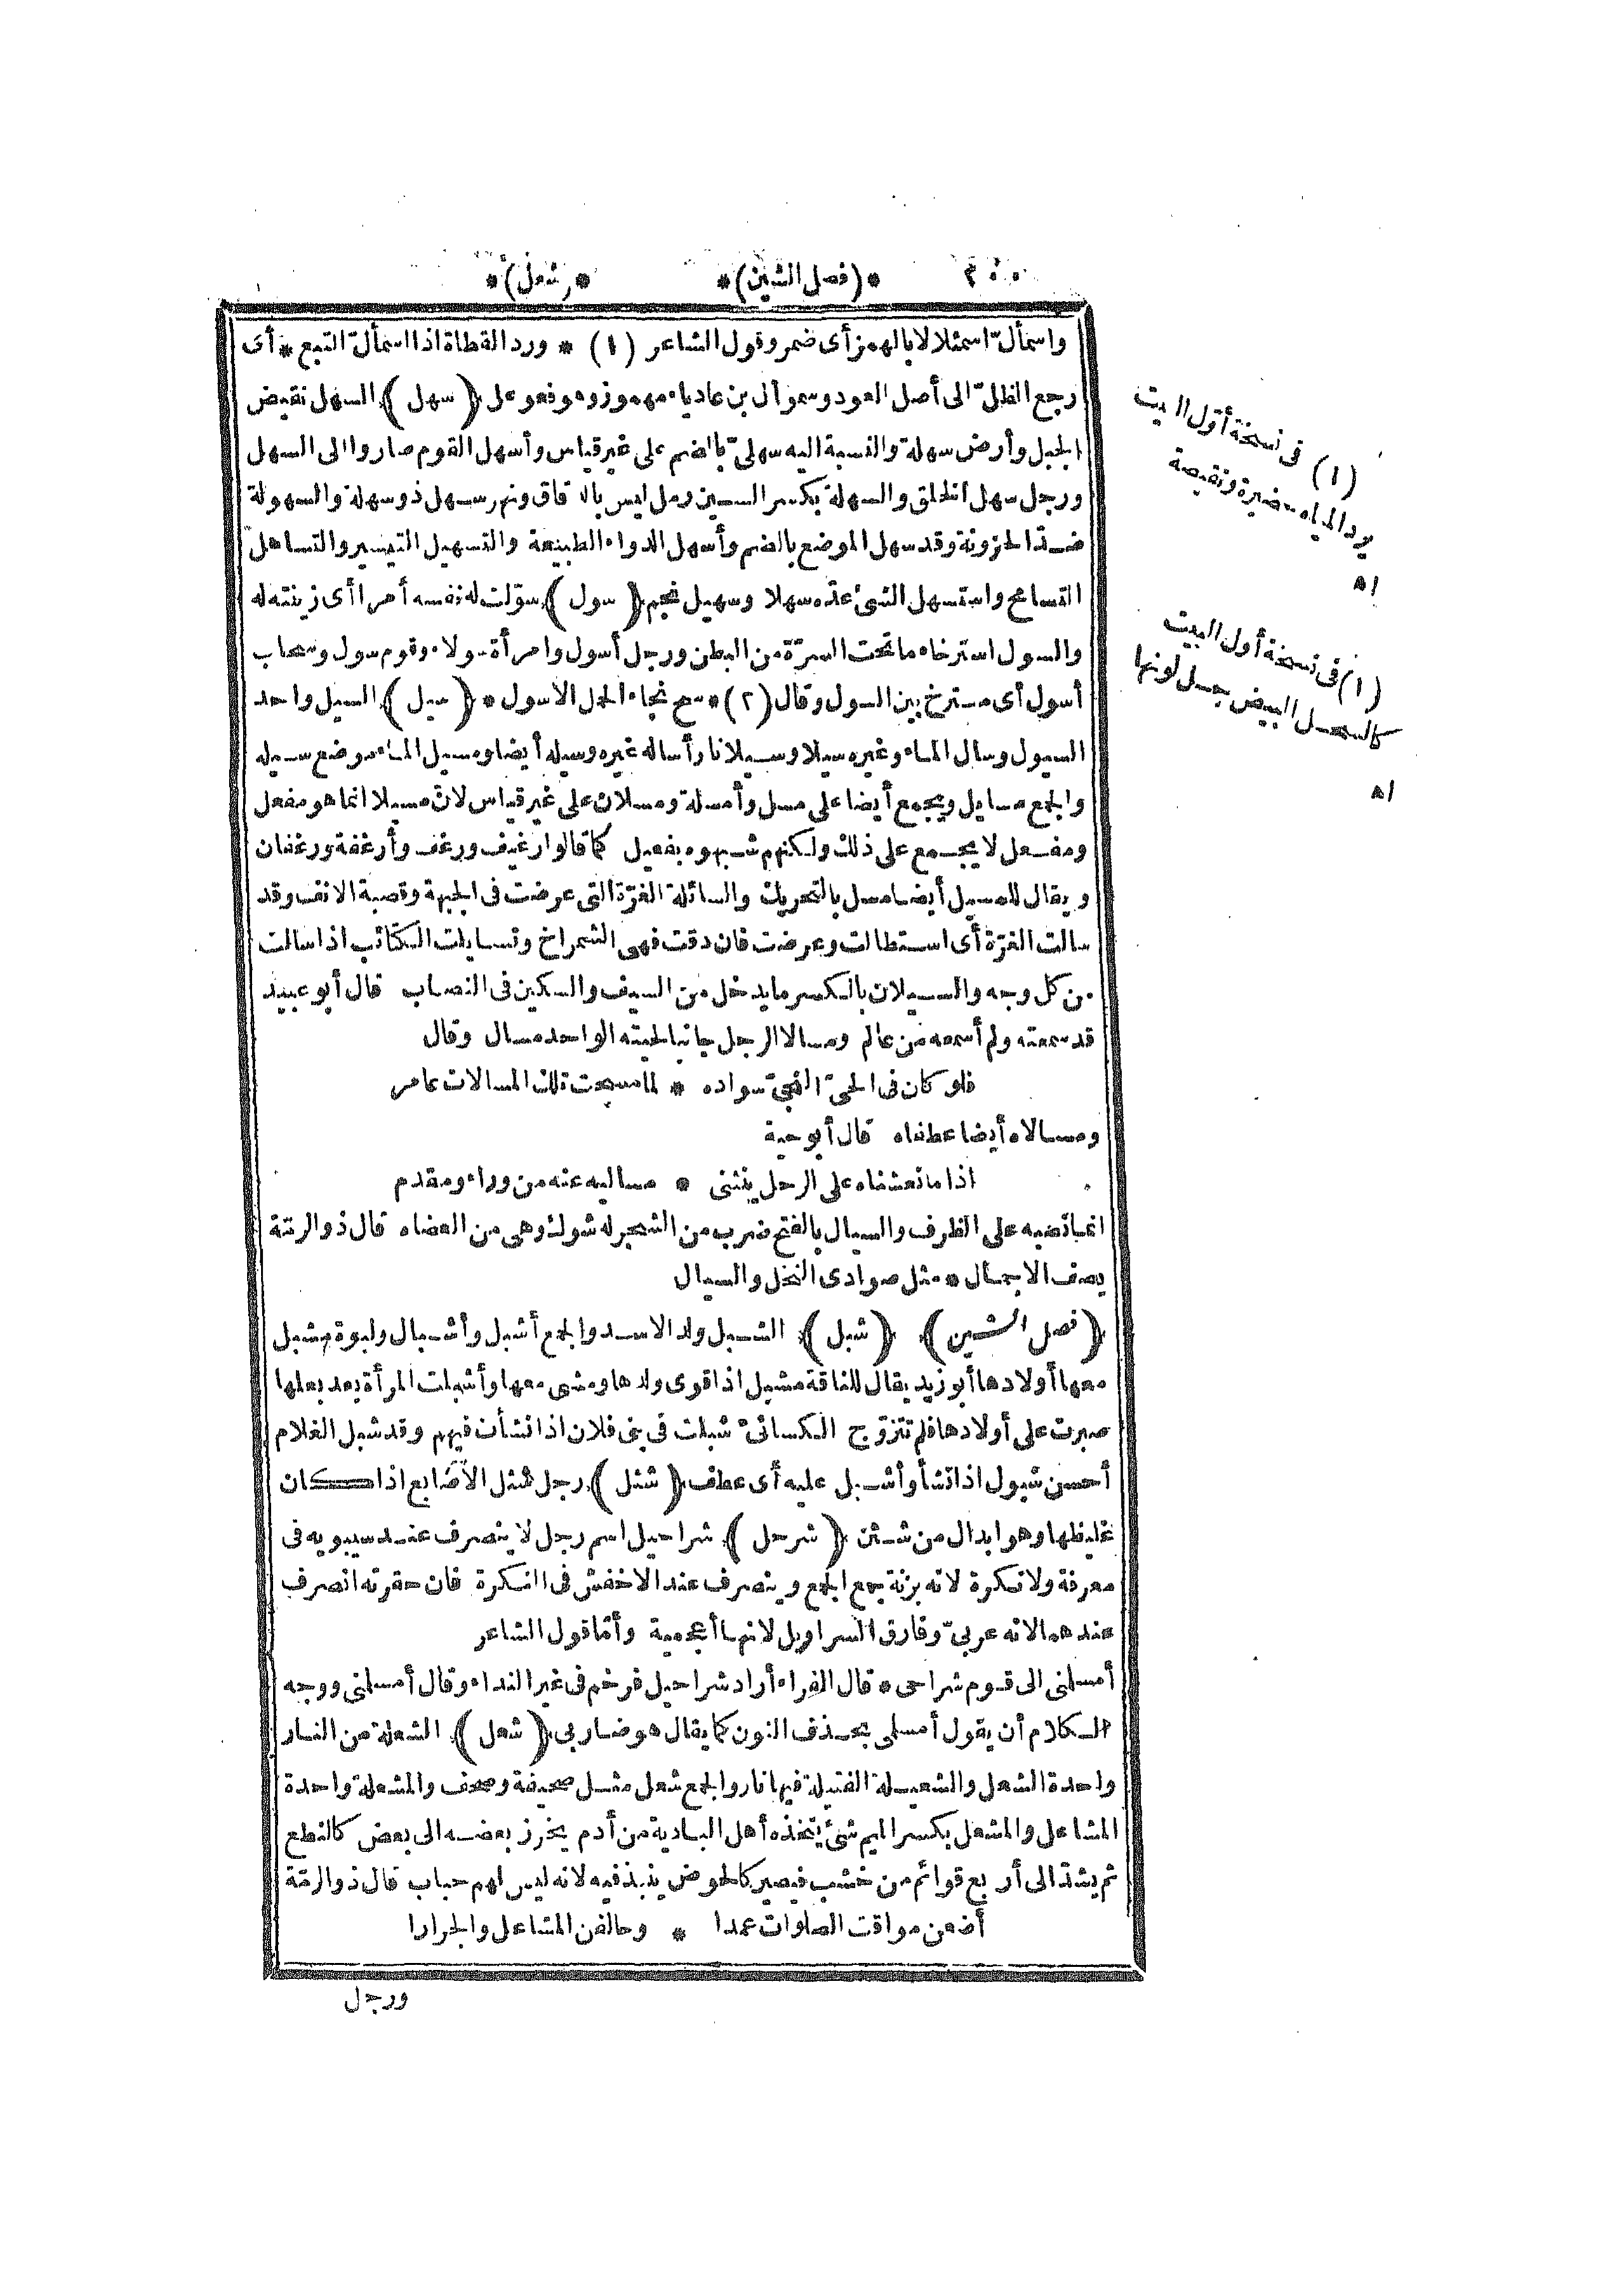 *(فصل الشين)* *(شعل)*
واسمألّ اسمئلالا بالهمز أى ضمر وقول الشاعر (١) * ورد القطاة اذا اسمألّ التبع * أى
رجع الظلّ الى أصل العود وسموأل بن عادياء مهموز وهو فعوعل (سهل) السهل نقيض
الجبل وأرض سهلة والنسبة اليه سهلىّ بالضم على غير قياس وأسهل القوم صاروا الى السهل
ورجل سهل الخلق والسهلة بكسر السين رمل ليس بالدقاق ونهر سهل ذو سهلة والسهولة
ضدّ الحزونة وقد سهل الموضع بالضم وأسهل الدواء الطبيعة والتسهيل التيسير والتساهل
التسامح واستسهل الشئ عدّه سهلا وسهيل نجم (سول) سوّلت له نفسه أمرا أى زينته له
والسول استرخاء ما تحت السرّة من البطن ورجل أسول وامرأة سولاء وقوم سول وسحاب
أسول أى مسترخ بين السول وقال (٢) * سح نجاء الحمل الاسول * (سيل) السيل واحد
السيول وسال الماء وغيره سيلا وسيلانا وأساله غيره وسيله أيضا ومسيل الماء موضع سيله
والجمع مسايل ويجمع أيضا على مسل وأمسلة ومسلان على غير قياس لانّ مسيلا انما هو مفعل
ومفعل لا يجمع على ذلك ولكنهم شبهوه بفعيل كما قالوا رغيف ورغف وأرغفة ورغفان
ويقال للمسيل أيضا مسل بالتحريك والسائلة الغرّة التى عرضت فى الجبهة وقصبة الانف وقد
سالت الغرّة أى استطالت وعرضت فان دقت فهى الشمراخ وتسايلت الكتائب اذا سالت
من كل وجه والسيلان بالكسر ما يدخل من السيف والسكين فى النصاب قال أبو عبيد
قد سمعته ولم أسمعه من عالم ومسالا الرجل جانبا لحيته الواحد مسال وقال
فلو كان فى الحىّ النجىّ سواده * لما مسحت تلك المسالات عامر
ومسالاه أيضا عطفاه قال أبو حية
اذا ما تغشناه على الرحل ينثنى * مساليه عنه من وراء ومقدم
انما نصبه على الظرف والسيال بالفتح ضرب من الشجر له شوك وهى من العضاه قال ذو الرمّة
يصف الاجمال * مثل صوادى النخل والسيال
(فصل الشين) (شبل) الشبل ولد الاسد والجمع أشبل وأشبال ولبوة مشبل
معها أولادها أبو زيد يقال للناقة مشبل اذا قوى ولدها ومشى معها وأشبلت المرأة بعد بعلها
صبرت على أولادها فلم تتزوّج الكسائىّ شبلت فى بنى فلان اذا نشأت فيهم وقد شبل الغلام
أحسن شبول اذا نشأ وأشبل عليه أى عطف (شثل) رجل شثل الأصابع اذا كان
غليظها وهو ابدال من شثن (شرحل) شراحيل اسم رجل لا ينصرف عند سيبويه فى
معرفة ولا نكرة لانه بزنة جمع الجمع وينصرف عند الاخفش فى النكرة فان حقرته انصرف
عندهما لانه عربىّ وفارق السراويل لانها أعجمية وأمّا قول الشاعر
أمسلنى الى قوم شراحى * قال الفراء أراد شراحيل فرخم فى غير النداء وقال أمسلنى ووجه
الكلام أن يقول أمسلمى بحذف النون كما يقال هو ضاربى (شعل) الشعلة من النار
واحدة الشعل والشعيلة الفتيلة فيها نار والجمع شعل مثل صحيفة وصحف والمشعلة واحدة
المشاعل والمشعل بكسر الميم شئ يتخذه أهل البادية من أدم يخرز بعضه الى بعض كالنطع
ثم يشدّ الى أربع قوائم من خشب فيصير كالحوض ينبذ فيه لانه ليس لهم حباب قال ذو الرمّة
أضعن مواقت الصلوات عمدا * وحالفن المشاعل والجرارا
ورجل
(١) فى نسخة أوّل البيت
يرد المياه حضيرة ونفيضة
اه
(١) فى نسخة أول البيت
كالسحل البيض جلا لونها
اه